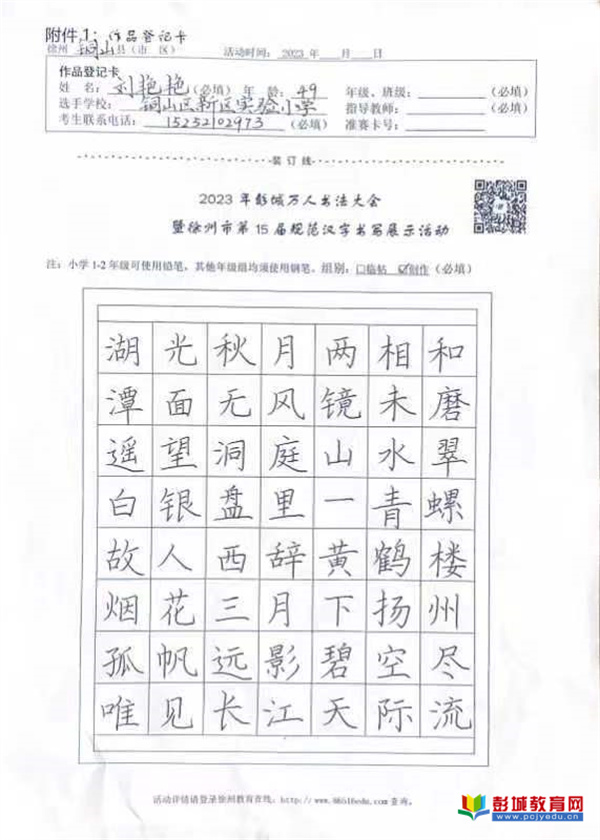 附件1：作品登记卡
徐州 铜山 县（市 区） 活动时间：2023 年 月 日
作品登记卡
姓 名：刘艳艳（必填） 年 龄：49 年级、班级：（必填）
选手学校：铜山区新区实验小学 指导教师：（必填）
考生联系电话：15252102973（必填） 准赛卡号：
装 订 线
2023 年彭城万人书法大会
暨徐州市第 15 届规范汉字书写展示活动
注：小学 1-2 年级可使用铅笔，其他年级组均须使用钢笔。组别：□临帖 ☑创作（必填）
湖光秋月两相和
潭面无风镜未磨
遥望洞庭山水翠
白银盘里一青螺
故人西辞黄鹤楼
烟花三月下扬州
孤帆远影碧空尽
唯见长江天际流
活动详情请登录徐州教育在线：http://www.0516edu.com 查询。
彭城教育网
www.pcjyedu.com